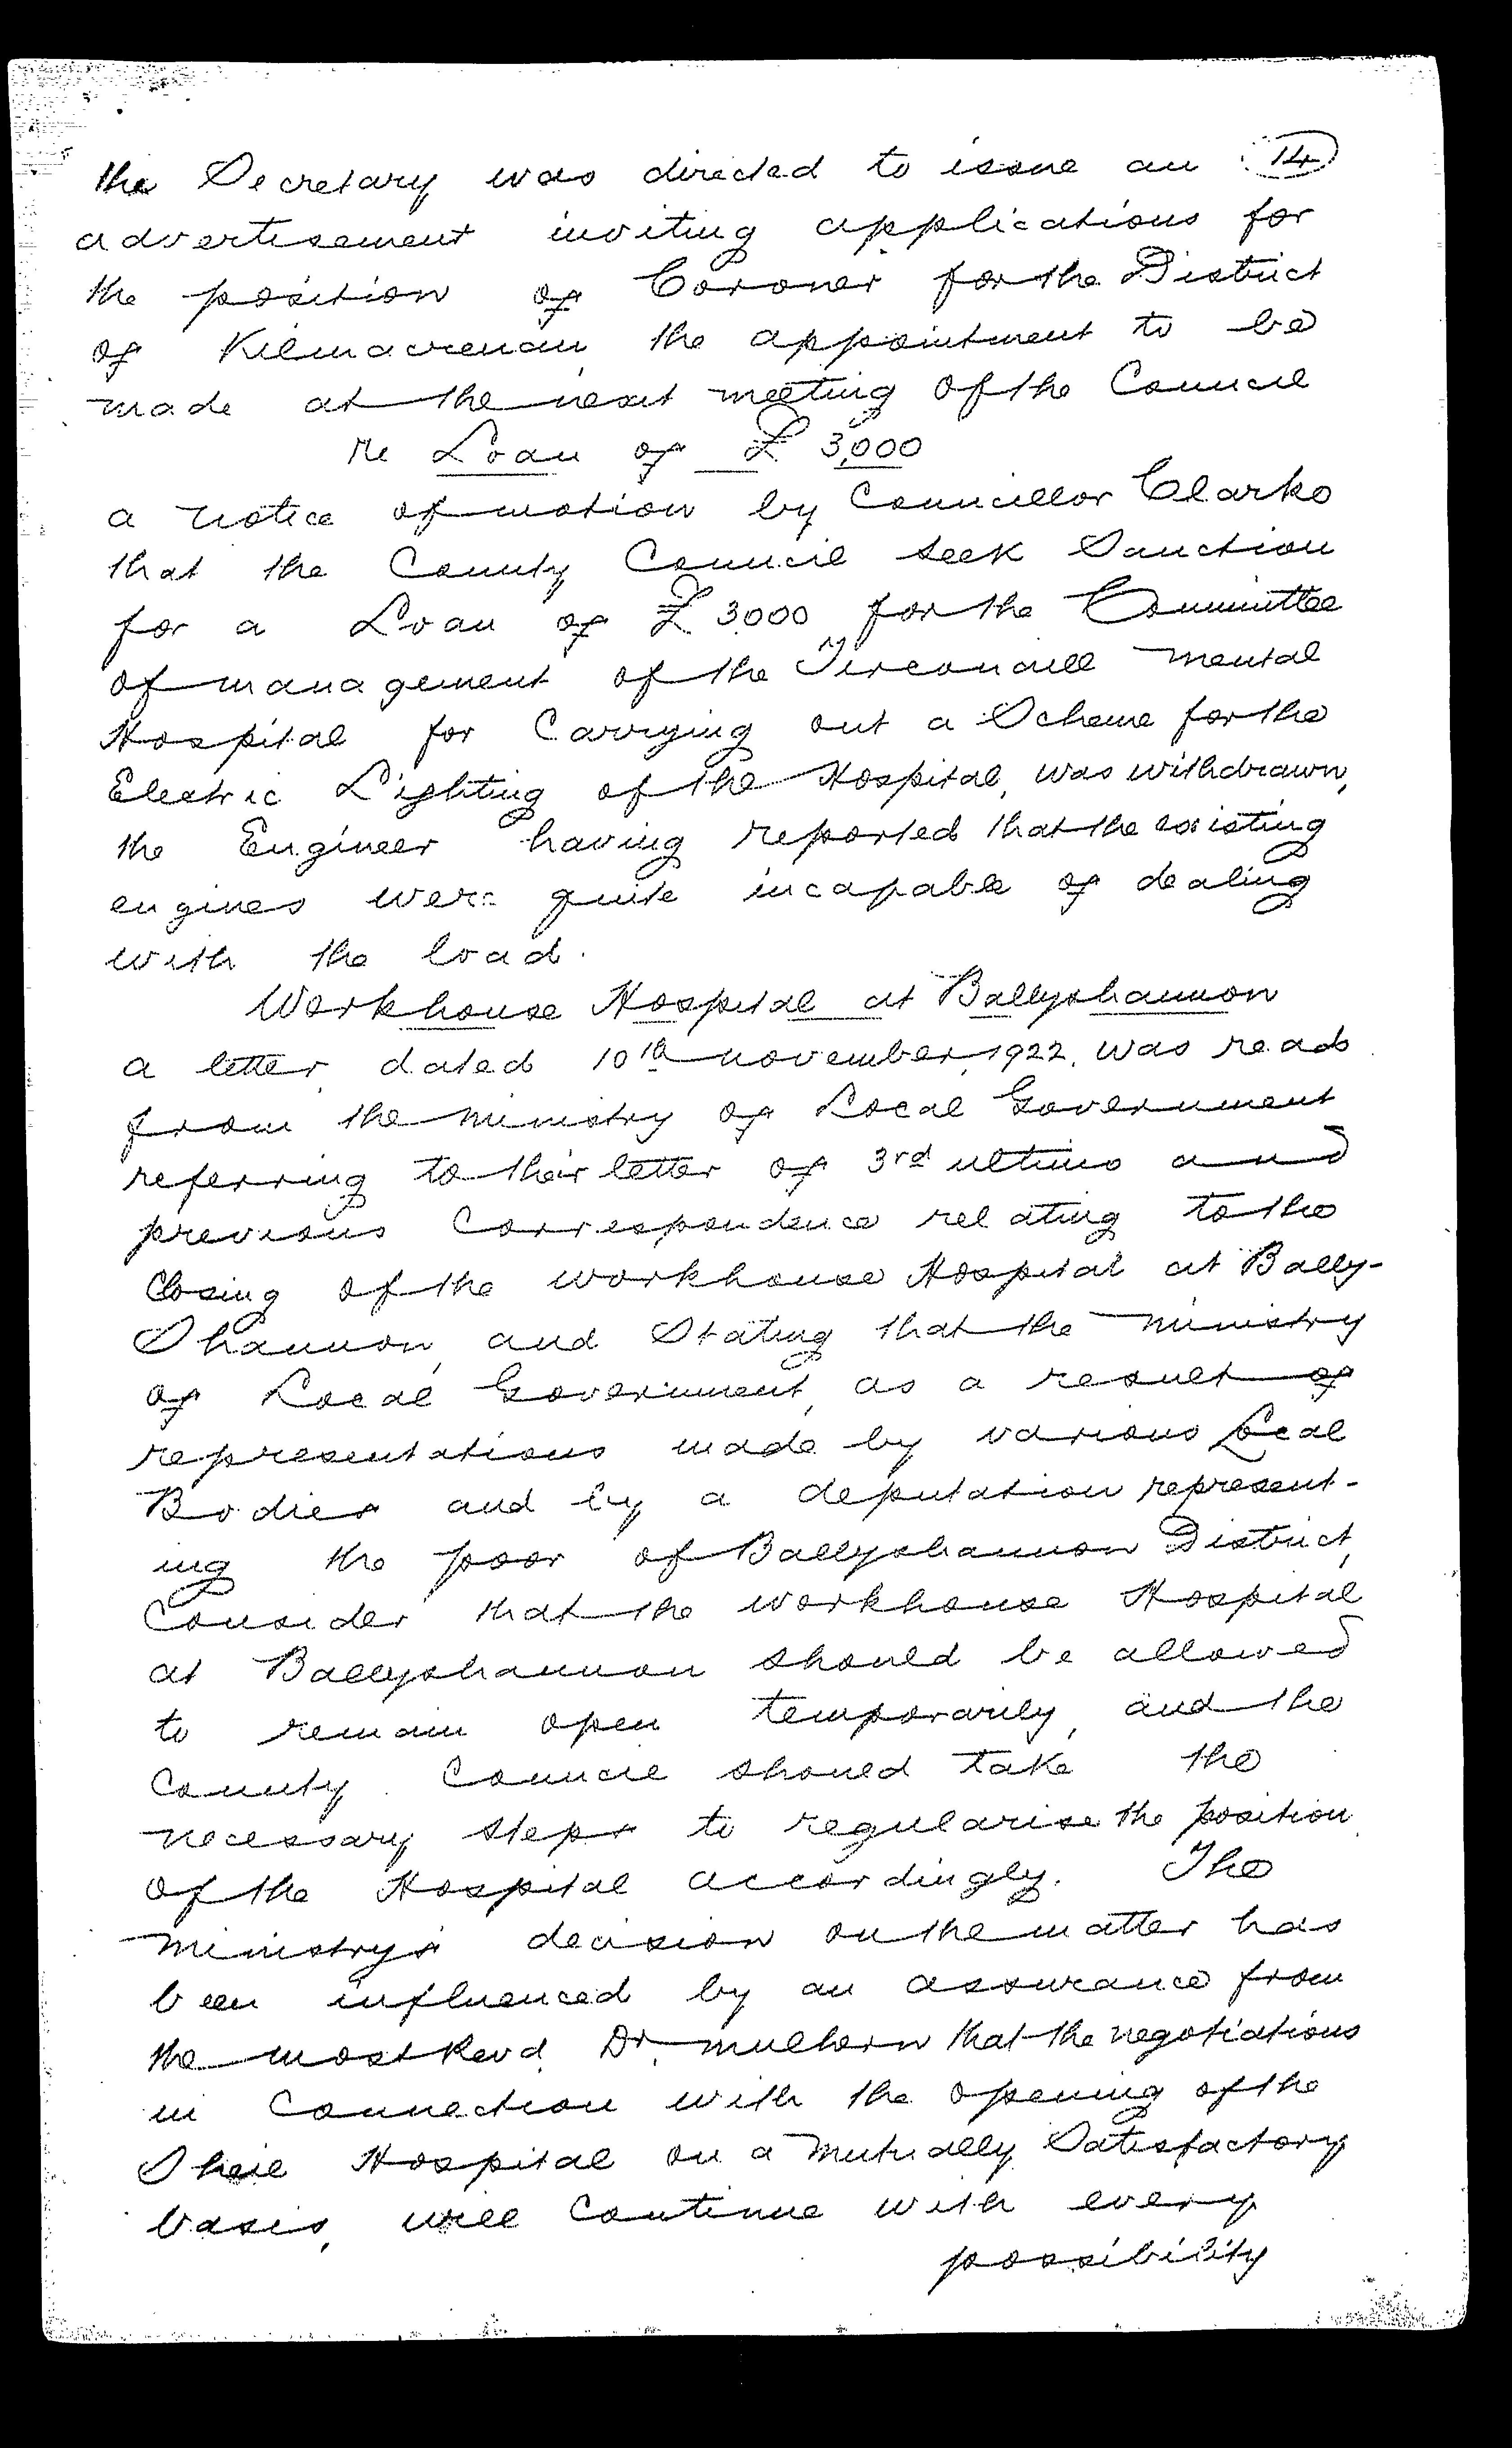 the Secretary was directed to issue an 14
advertisement inviting applications for
the position of Coroner for the District
of Kilmacrenan, the appointment to be
made at the next meeting of the Council
re Loan of £3,000
a notice of motion by Councillor Clarke
that the County Council seek Sanction
for a Loan of £3000 for the Committee
of management of the Tirconaill mental
Hospital for Carrying out a Scheme for the
Electric Lighting of the Hospital, was withdrawn,
the Engineer having reported that the existing
engines were quite incapable of dealing
with the load.
Workhouse Hospital at Ballyshannon
a letter, dated 10th november, 1922, was read
from the ministry of Local Government
referring to their letter of 3rd ultimo and
previous Correspondence relating to the
Closing of the workhouse Hospital at Bally-
Shannon, and Stating that the ministry
of Local Government, as a result of
representations made by various Local
Bodies and by a deputation represent-
ing the poor of Ballyshannon District,
Consider that the workhouse Hospital
at Ballyshannon should be allowed
to remain open temporarily, and the
County Council should take the
necessary steps to regularise the position
of the Hospital accordingly. The
ministry's decision on the matter has
been influenced by an assurance from
the most Revd. Dr. mulhern that the negotiations
in Connection with the opening of the
Sheil Hospital on a mutually Satisfactory
basis, will Continue with every
possibility